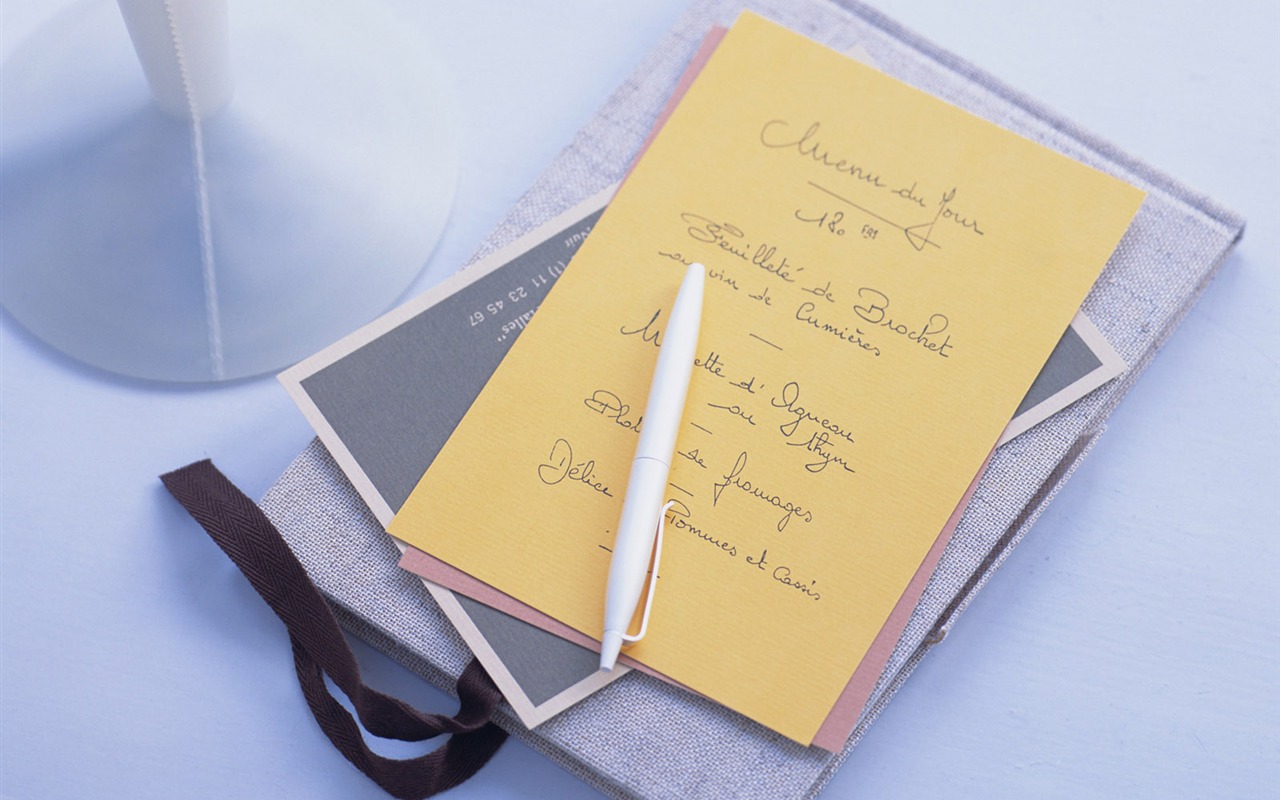 Menu du Jour
180 FRS
Feuilleté de Brochet
au vin de Cumières
—
d'Agneau
au thym
—
de fromages
—
Délice Pommes et Cassis
alles"
(1) 11 23 45 67